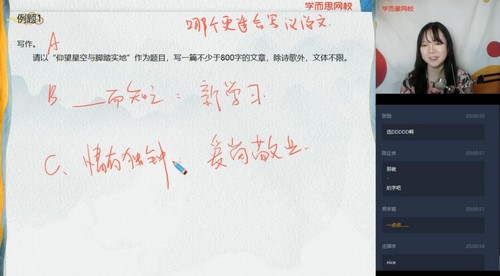 例题1
哪个更适合写议论文
学而思网校
写作。
A
请以“仰望星空与脚踏实地”作为题目，写一篇不少于800字的文章，除诗歌外，文体不限。
B. __而知之：新学习
C、情有独钟、爱岗敬业
学而思网校
选DDDDD啊
那就
的字吧
一点点......
nice